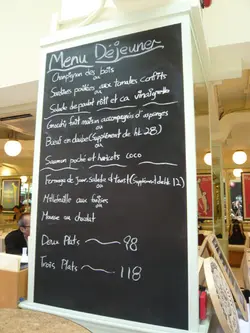 Menu Déjeuner
Champignon des bois
ou
Sardines poêlées aux tomates confits
ou
Salade de poulet rôti et ca vinaigrette
Gnocchi fait maison accompagnés d'asperges
ou
Bœuf en daube (Supplément de hk 28)
ou
Saumon poché et haricots coco
Fromage de jour, salade et toast (Supplément de hk 12)
ou
Millefeuille aux fraises
ou
Mousse au chocolat
Deux Plats 98
Trois Plats 118